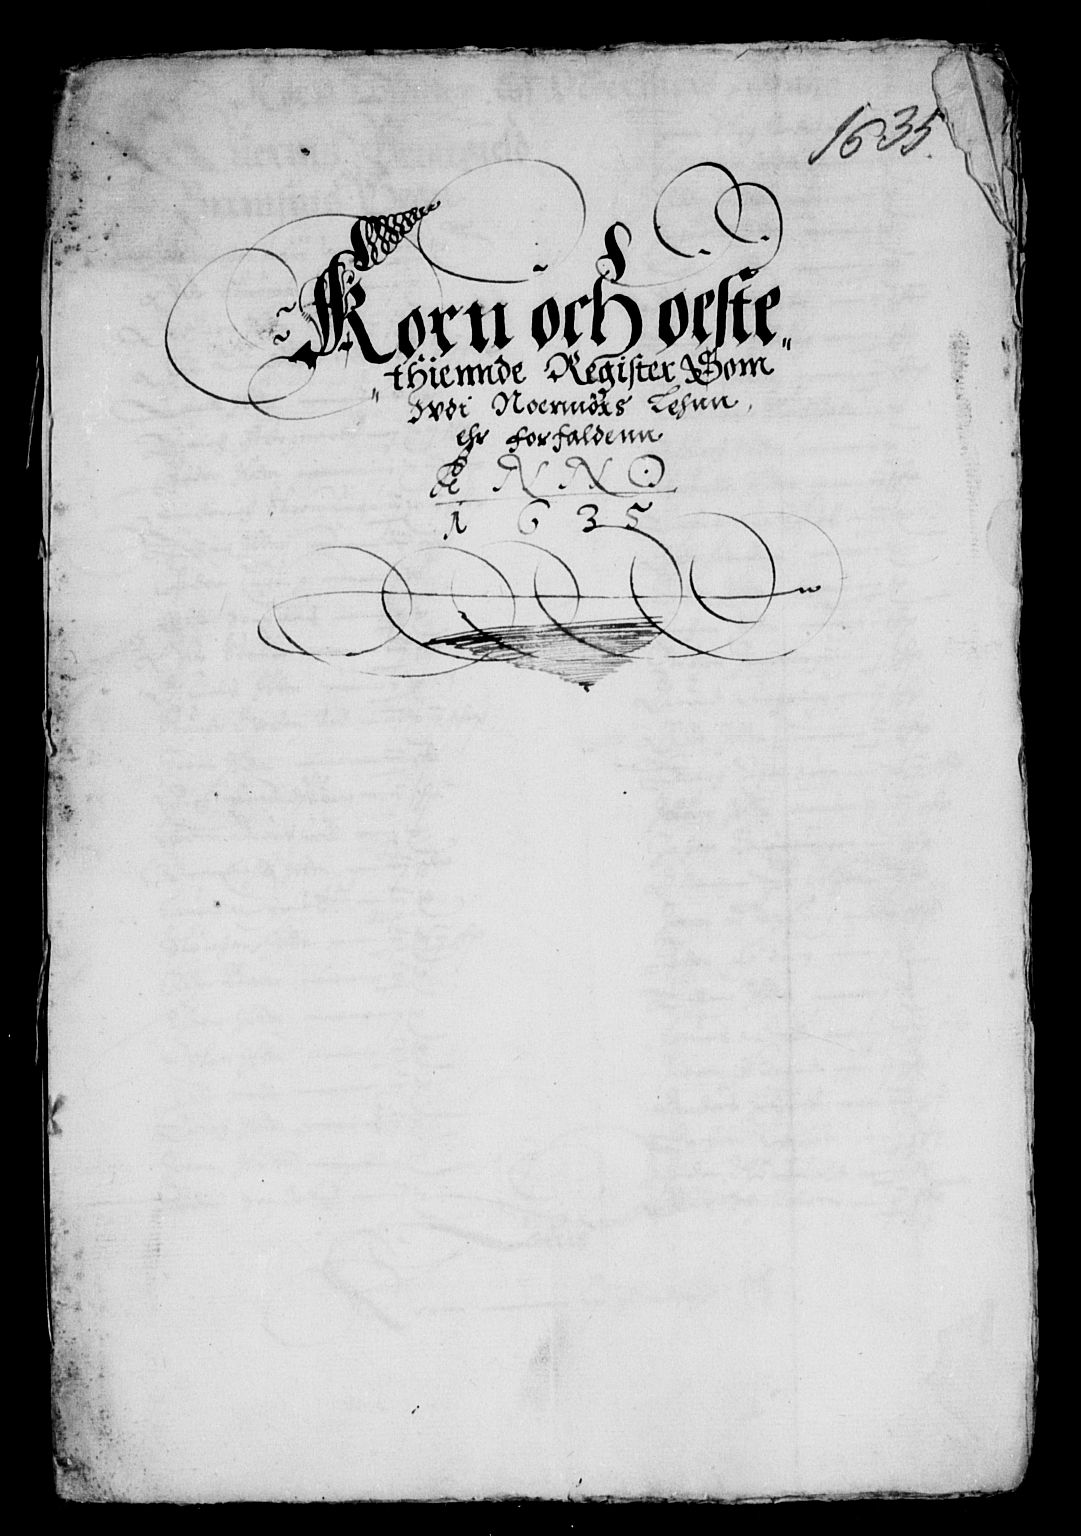 1635.
Korn och oeste„
„thiennde Register Som
Jvdi Noermörs Lehnn,
ehr forfaldenn
ANNO
1635